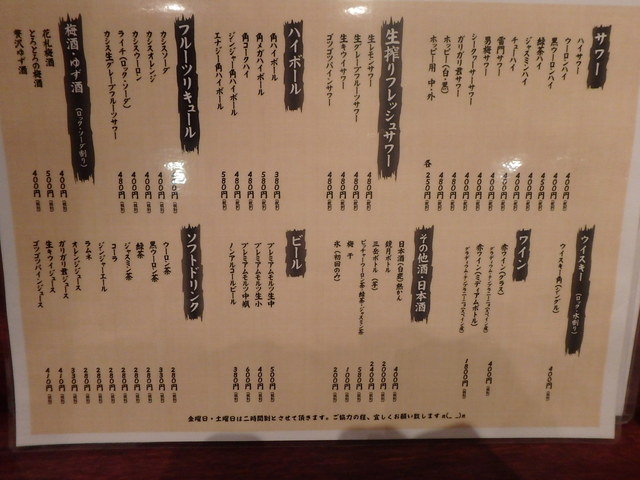 サワー
ハイサワー
ウーロンハイ
黒ウーロンハイ
緑茶ハイ
ジャスミンハイ
チューハイ
雷門サワー
男梅サワー
シークヮーサーサワー
ガリガリ君サワー
ホッピー(白・黒)
ホッピー用 中・外
400円
400円
400円
400円
400円
400円
400円
400円
400円
各 250円
生搾りフレッシュサワー
生レモンサワー 480円
生グレープフルーツサワー 480円
生キウイサワー 480円
ゴツゴツパインサワー 480円
ハイボール
角ハイボール 380円
角メガハイボール 580円
角コークハイ 480円
ジンジャー角ハイボール 480円
エナジー角ハイボール 580円
フルーツリキュール
カシスソーダ
カシスオレンジ 400円
カシスウーロン 400円
ライチ(ロック・ソーダ) 400円
カシス生グレープフルーツサワー 480円
梅酒・ゆず酒 (ロック・ソーダ割り)
花札梅酒 400円
とろとろの梅酒 500円
贅沢ゆず酒 400円
ウィスキー (ロック・水割り)
ウィスキー角(シングル) 400円
ワイン
赤ワイン(グラス) 400円
赤ワイン(ミディアムボトル) 1800円
その他酒・日本酒
日本酒(白鹿)熱かん 400円
鏡月ボトル 2000円
三岳ボトル(芋) 2400円
ピッチャーウーロン茶・緑茶・ジャスミン茶 580円
梅干 100円
氷(初回のみ) 200円
ビール
プレミアムモルツ生中 500円
プレミアムモルツ生小 400円
プレミアムモルツ中瓶 600円
ノンアルコールビール 380円
ソフトドリンク
ウーロン茶 280円
黒ウーロン茶 330円
緑茶 280円
ジャスミン茶 280円
コーラ 280円
ジンジャーエール 280円
ラムネ 280円
オレンジジュース 280円
ガリガリ君ジュース 330円
生キウイジュース 410円
ゴツゴツパインジュース 410円
金曜日・土曜日は二時間制とさせて頂きます。ご協力の程、宜しくお願い致しますm(_ _)m